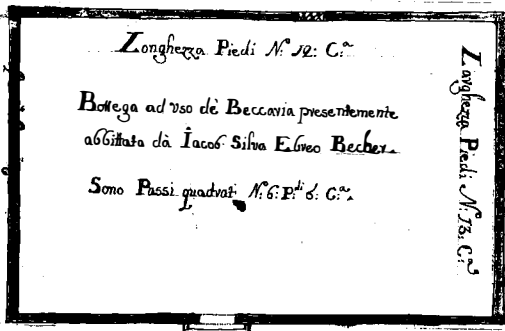 Longhezza Piedi N.º 12: C.ª
Bottega ad vso dè Beccaria presentemente
affittata dà Iacob Silva Ebreo Becher.
Sono Passi quadrati N.º 6: P.di 6: C.ª.
Larghezza Piedi N.º 13: C.ª